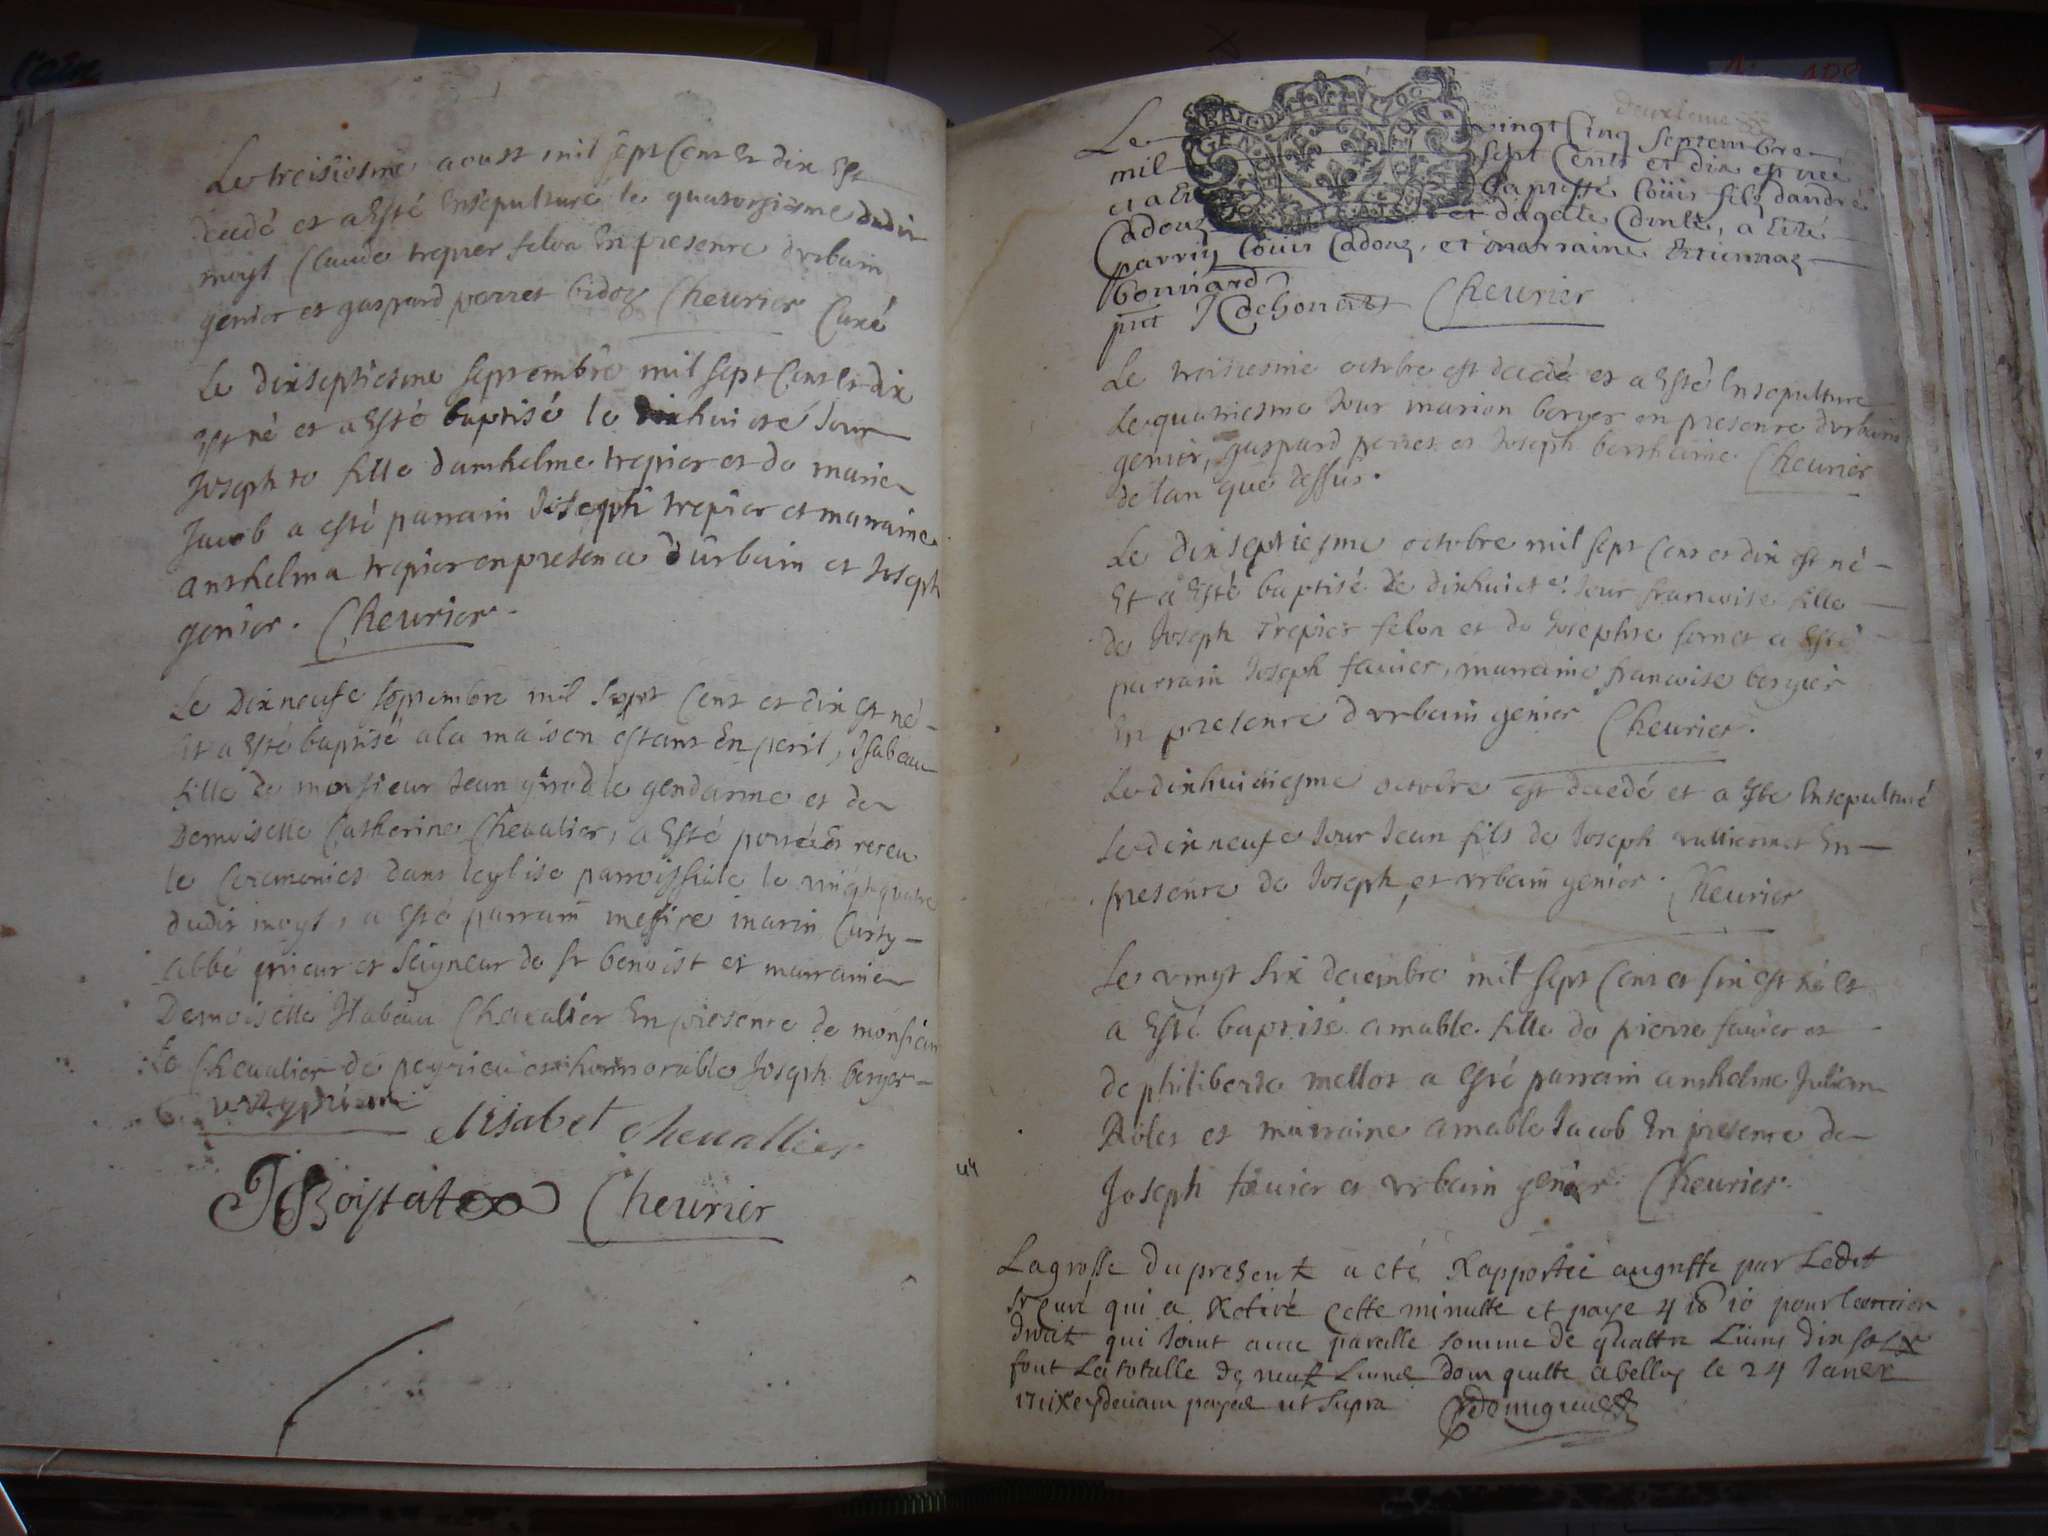 Le treisiesme aoust mil sept Cent et dix Est
decedé et a Esté Ensepulturé le quatorziesme dudit
moys Claude trepier felon En presence durbain
genier et gaspard perret bidoz Cheurier Curé
Le dixseptiesme septembre mil sept Cent et dix
Est né et a Esté baptisé le dixhuict Jour
Josephte fille damhelme trepier et de marie
Jacob a esté parrain Joseph trepier et marraine
anthelma trepier en presence durbain et Joseph
genier. Cheurier.
Le Dixneufe septembre mil sept Cent et dix est né
Et a Esté baptisé a la maison estant En peril, Isabeau
fille de monsieur Jean girod le gendarme et de
Demoiselle Catherine Cheualier, a Esté receu
le Ceremonies dans leglise parroissiale le vingtquatre
dudit moys, a esté parrain messire marin Curty
abbé prieur et seigneur de st benoist et marraine
Demoiselle Isabeau Cheualier En presence de monsieur
Le Cheualier de peyrieu et honnorable Joseph berger
Elisabet cheuallier
JBoistat Cheurier
deuxieme
Le vingt Cinq Septembre
mil sept Cents et dix est née
et a Esté Baptissé Loüis fils dandré
Cadouz et dagate Comte, a Esté
parrin Louis Cadouz, et marraine Estiennaz
bonuard
Cheurier
Le troisiesme octobre est decedé et a Esté Ensepulturé
Le quatriesme Jour marion berger en presence durbain
genier, gaspard perret et Joseph bertheime Cheurier
de lan que dessus.
Le dixseptiesme octobre mil sept Cent et dix est né
Et a Esté baptisé le dixhuict Jour francoise fille
de Joseph trepier felon et de Josephte fornet a Esté
parrain Joseph fauier, marraine francoise bergier
En presence d vrbain genier Cheurier.
Le dixhuictiesme octobre est decedé et a Esté Ensepulturé
Le dixneufe Jour Jean fils de Joseph vulliermet En
presence de Joseph et vrbain genier. Cheurier
Le vingt six decembre mil sept Cent et six est né et
a Esté baptisé amable fille de pierre fauier et
de philiberte mellot a esté parrain anthelme Julian
Rolet et marraine amable Jacob En presence de
Joseph fauier et vrbain genier. Cheurier.
44
La grosse du present a eté Rapportée au greffe par Ledit
sr curé qui a Retiré Cette minutte et paye 4 10 pour
droit qui Joint auec pareille somme de quattre Liures dix
font La totalle de neuf Liures dom quitte a belley le 24 Januer
payed ut supra